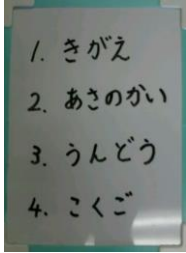 1. きがえ
2. あさのかい
3. うんどう
4. こくご